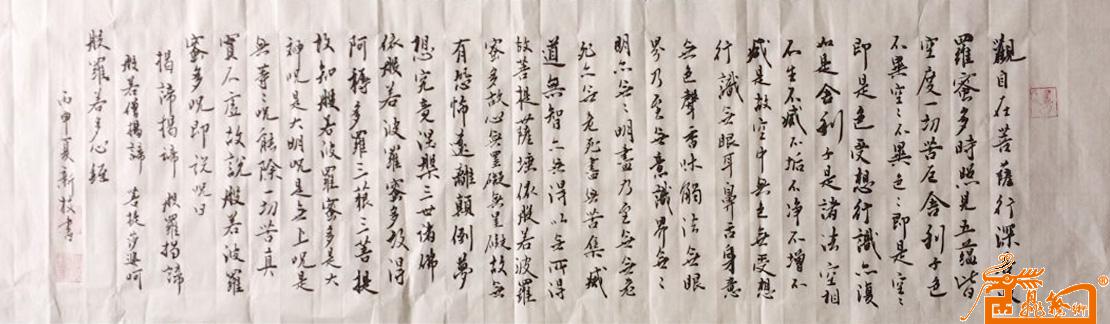 觀自在菩薩行深
羅蜜多時照見五蘊皆
空度一切苦厄舍利子色
不異空〻不異色〻即是空〻
即是色受想行識亦復
如是舍利子是諸法空相
不生不滅不垢不淨不增不
減是故空中無色無受想
行識無眼耳鼻舌身意
無色聲香味觸法無眼
界乃至無意識界無〻
明亦無〻明盡乃至無無老
死亦無老死盡無苦集滅
道無智亦無得以無所得
故菩提薩埵依般若波羅
蜜多故心無罣礙無罣礙故無
有恐怖遠離顛倒夢
想究竟涅槃三世諸佛
依般若波羅蜜多故得
阿耨多羅三藐三菩提
故知般若波羅蜜多是大
神咒是大明咒是無上咒是
無等〻咒能除一切苦真
實不虛故說般若波羅
蜜多咒即說咒曰
揭諦揭諦 般羅揭諦
般若僧揭諦 菩提莎婆呵
般羅若多心經
丙申夏新 書